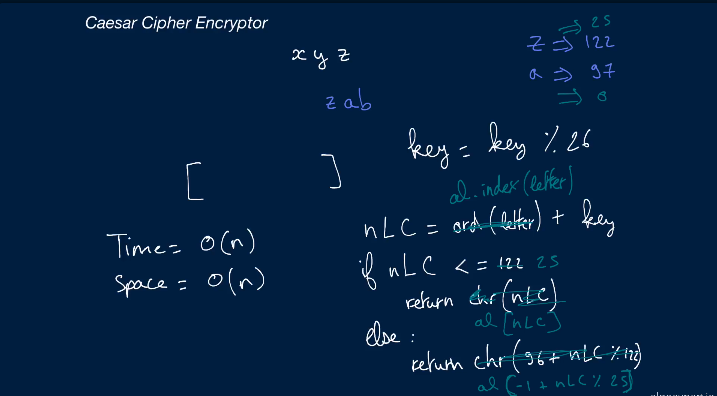 Caesar Cipher Encryptor
x y z
z ab
⇒ 25
z ⇒ 122
a ⇒ 97
⇒ 0
key = key % 26
[ ]
al.index(letter)
nLC = ord(letter) + key
Time = O(n)
Space = O(n)
if nLC <= 122 25
return chr(nLC)
al[nLC]
else:
return chr(96 + nLC % 122)
al(-1 + nLC % 25)